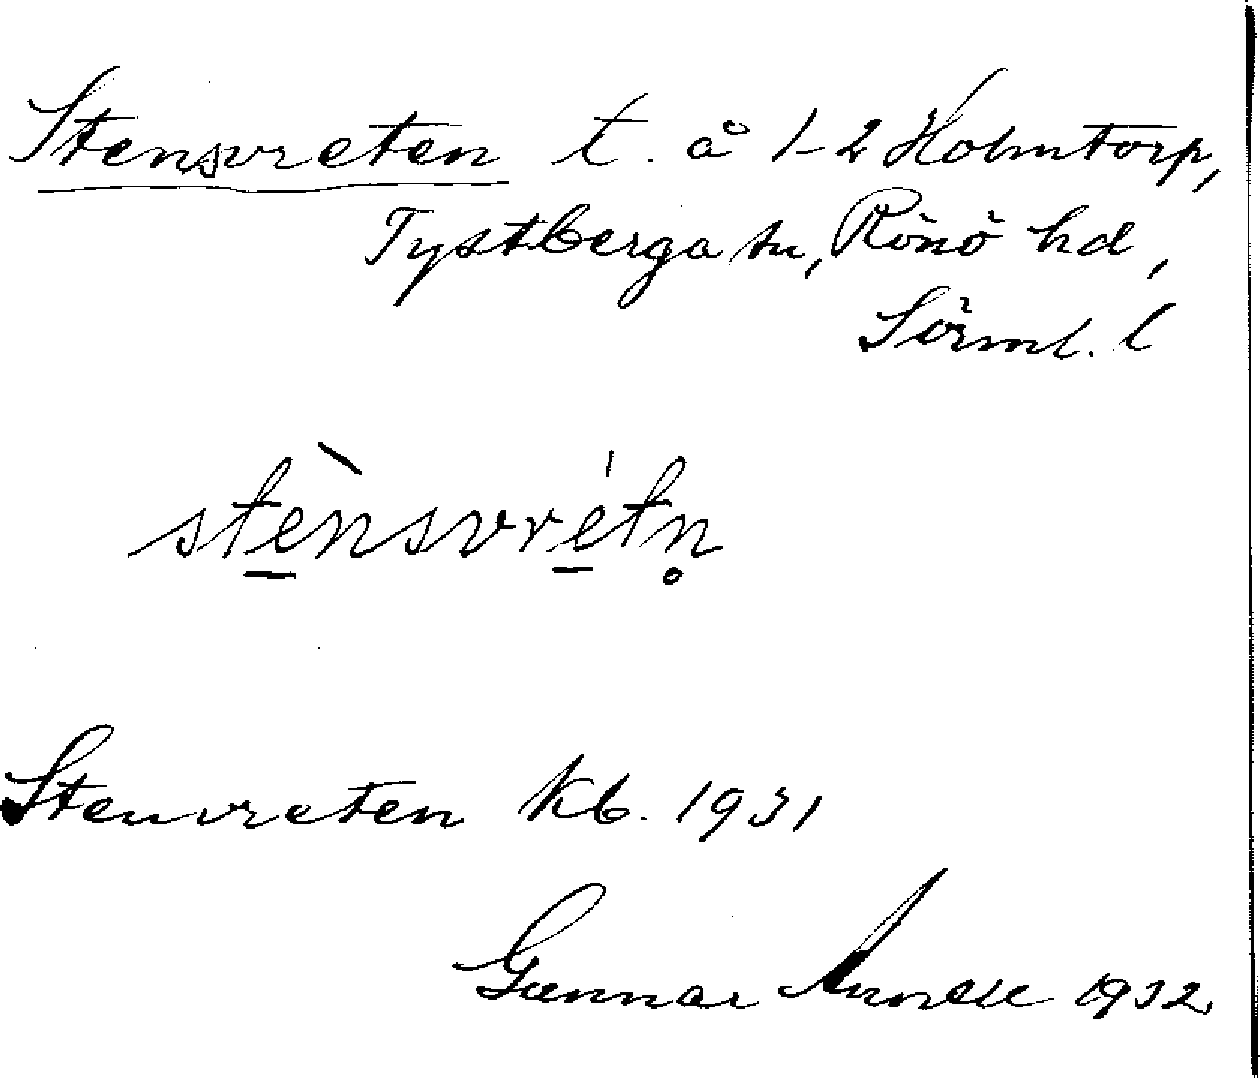 Stensvreten t. å 1-2 Holmtorp,
Tystberga sn, Rönö hd,
Sörml. l
stènsvrétn̥
Stenvreten Kb. 1931
Gunnar 1932